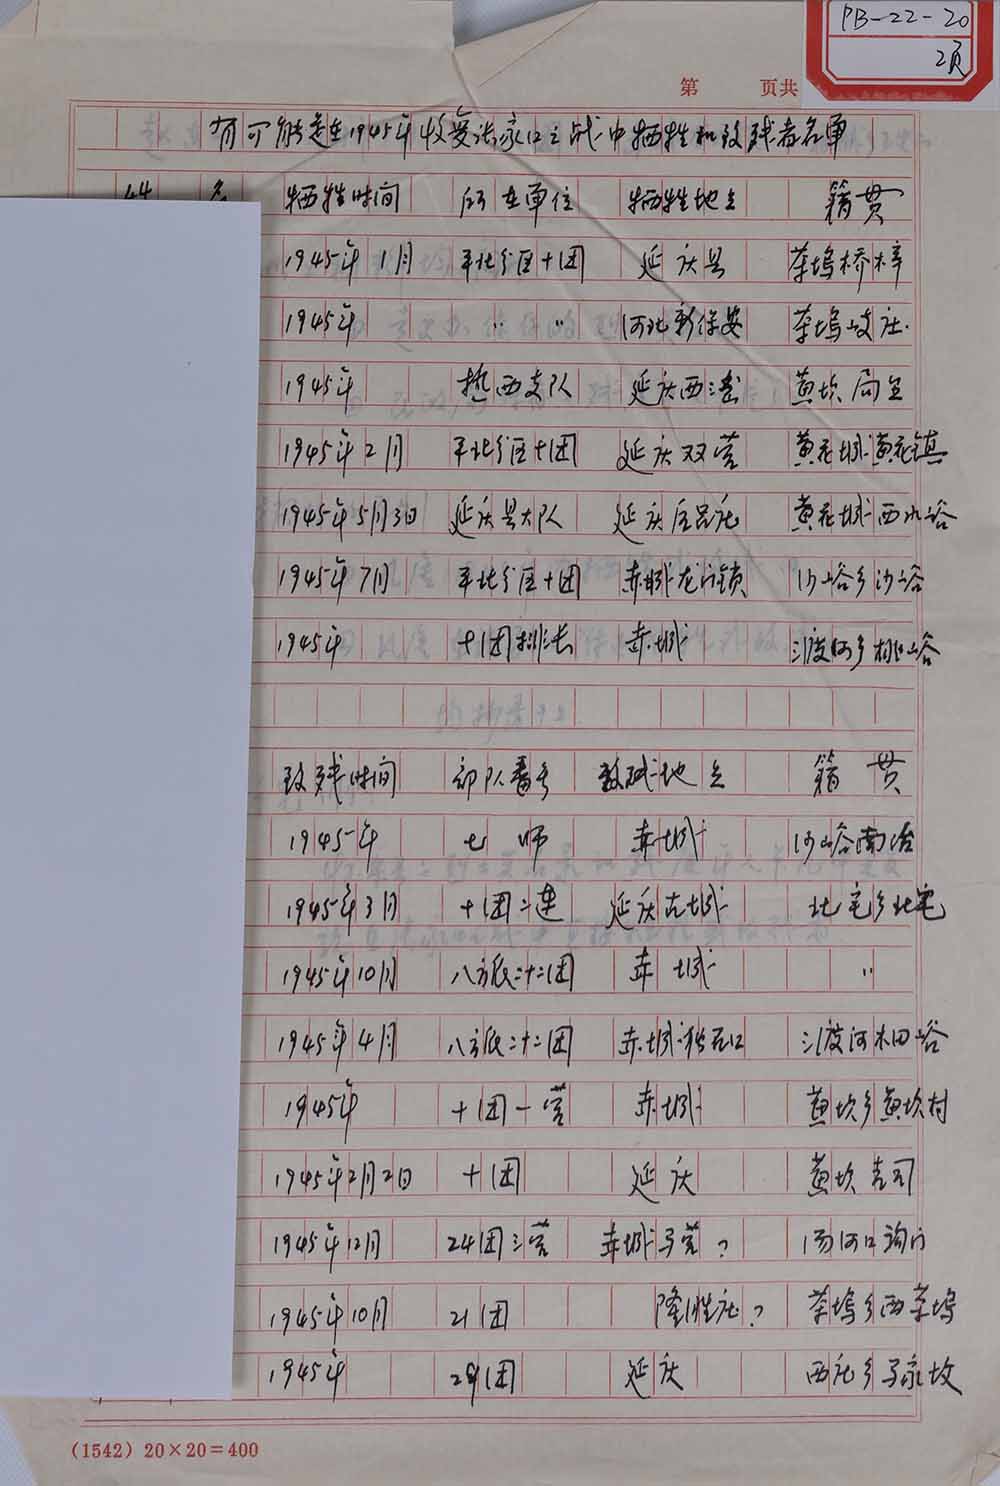 PB-22-20
2页
第 页共
有可能是在1945年收复张家口之战中牺牲和致残者名单
姓 名 牺牲时间 所在单位 牺牲地点 籍贯
1945年1月 平北分区十团 延庆县 茶坞桥梓
1945年 〃 〃 河北新保安 茶坞岐庄
1945年 热西支队 延庆西 黄坎局全
1945年2月 平北分区十团 延庆双营 黄花城黄花镇
1945年5月3日 延庆县大队 延庆 黄花城西水峪
1945年7月 平北分区十团 赤城龙门锁 沙峪乡沙峪
1945年 十团排长 赤城 三渡河乡桃山峪
致残时间 部队番号 致残地点 籍贯
1945年 七师 赤城 沙峪南冶
1945年3月 十团二连 延庆古城 北宅乡北宅
1945年10月 八方派二十二团 赤城 〃
1945年4月 八方派二十二团 赤城独石口 三渡河木田峪
1945年 十团一营 赤城 黄坎乡黄坎村
1945年2月2日 十团 延庆 黄坎吉司
1945年12月 24团三营 赤城马营? 汤河口沟门
1945年10月 21团 隆胜庄? 茶坞乡西茶坞
1945年 29团 延庆 西庄乡马家坟
(1542) 20×20=400